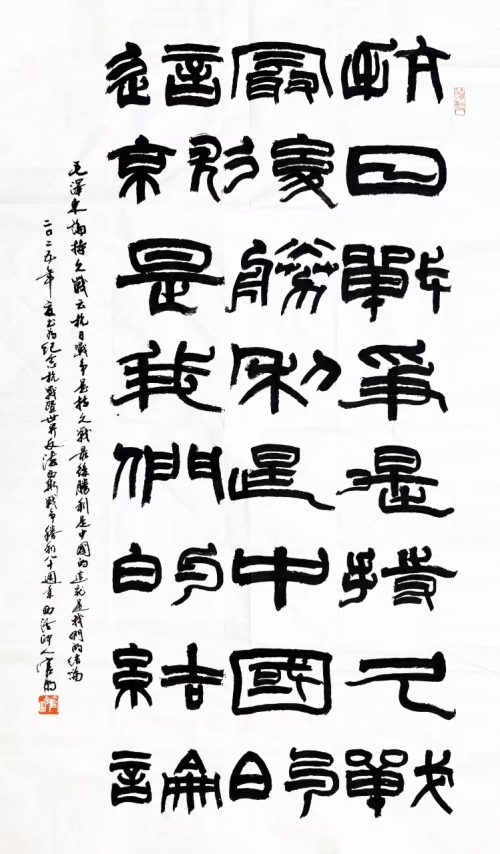 抗日戰爭是持久戰
最後勝利是中國的
這就是我們的結論
毛澤東論持久戰云抗日戰爭是持久戰最後勝利是中國的這就是我們的結論
二〇二五年夏書為紀念抗戰暨世界反法西斯戰爭勝利八十週年西泠印人